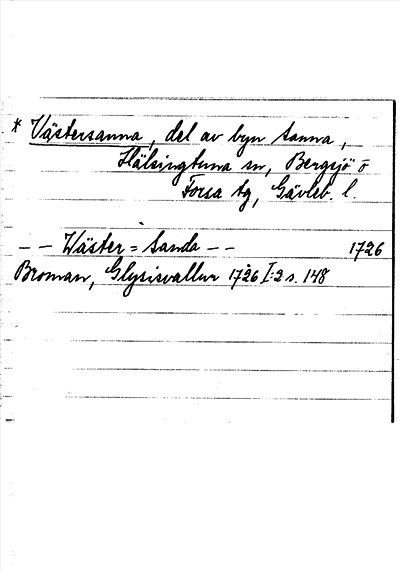 * Västersanna, del av byn Sanna,
Hälsingtuna sn, Bergsjö o
Forsa tg, Gävleb. l.
– – Wäster = Sanda – – 1726
Broman, Glysisvallur 1726 I:2 s. 148